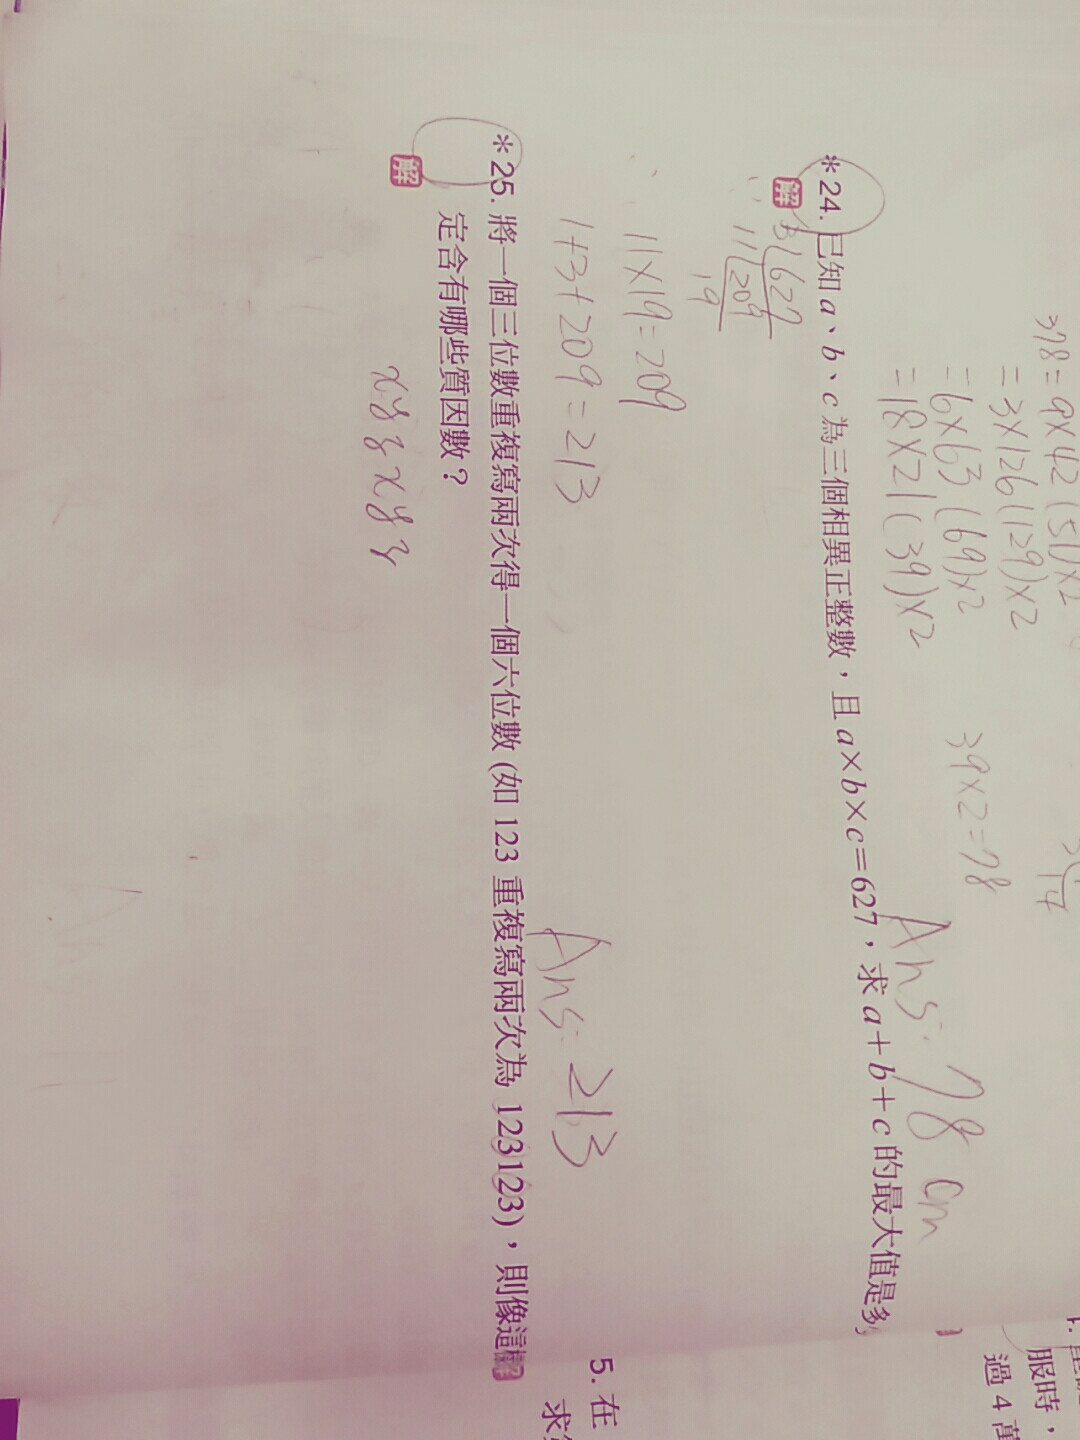 378=9×42(51)×2
=3×126(129)×2
=6×63(69)×2
=18×21(39)×2
39×2=78
Ans: 78 cm
*24. 已知 a、b、c 為三個相異正整數,且 a×b×c=627,求 a+b+c 的最大值是多
解
3 627
11 209
19
11×19=209
1+3+209=213
Ans: 213
*25. 將一個三位數重複寫兩次得一個六位數 (如 123 重複寫兩次為 123123),則像這
解
定含有哪些質因數?
xyzxyz
服時,
過 4 萬
5. 在
求